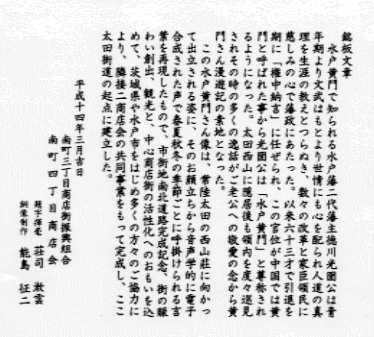 銘板文章
水戸黄門で知られる水戸藩二代藩主徳川光圀公は青
年期より文武はもとより世情にも心を配られ人道の真
理を生涯の教えとつらぬき、数々の改革と家臣領民に
慈しみの心で藩政にあたった。以来六十三才で引退を
期に「権中納言」に任ぜられ、この官位が中国では黄
門と呼ばれた事から光圀公は「水戸黄門」と尊称され
るようになった。太田西山に隠居後も領内を度々巡見
されその時の多くの逸話がご老公への敬愛の念から黄
門さん漫遊記の素地となった。
この水戸黄門さん像は、常陸太田の西山荘に向かっ
て出立される姿に、そのお顔立ちから音声学的に電子
合成された声で春夏秋冬の季節ごとに呼掛けられる言
葉を再現したもので、市街地南北道路完成記念、街の賑
わい創出、観光と、中心商店街の活性化へのおもいを込
めて、茨城県や水戸市をはじめ多くの方々のご協力に
より、隣接二商店会の共同事業をもって完成し、ここ
太田街道の起点に建立した。
平成十四年三月吉日
南町三丁目商店街振興組合
南町四丁目商店会
題字揮毫 荘司 漱雲
銅像制作 能島 征二